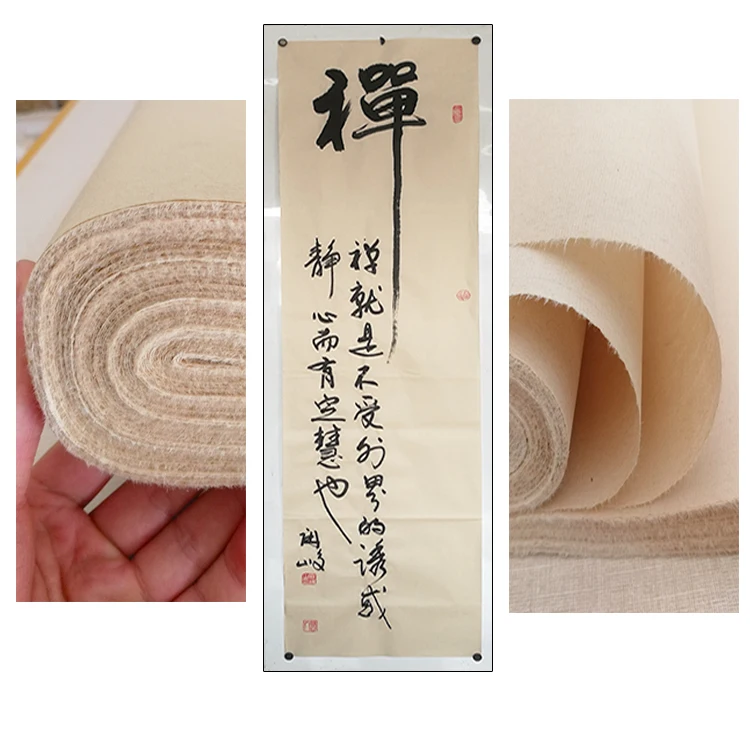 禪
禅就是不受外界的诱惑
静心而有空慧也